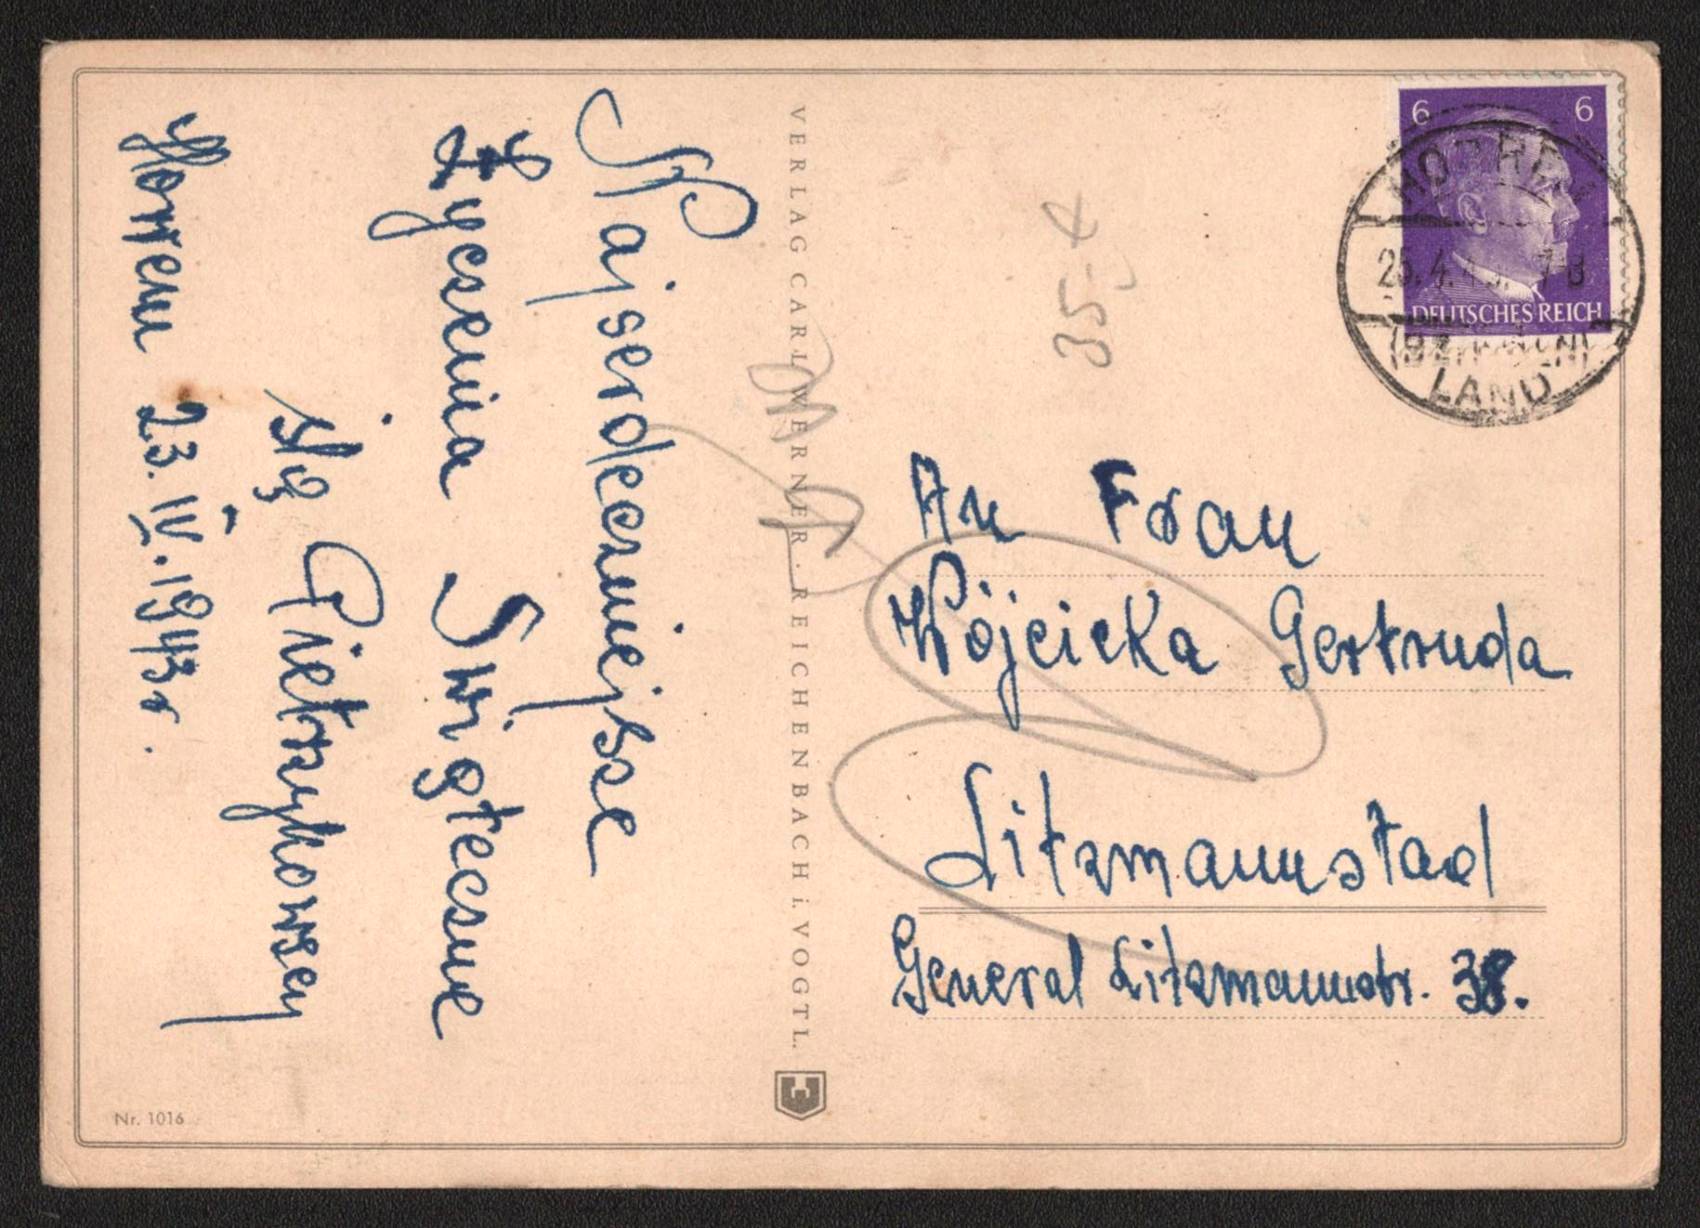 Najserdeczniejsze
Życzenia Świąteczne
śłą Pietrzykowscy
Horrem 23. IV. 1943 r.
VERLAG CARL WERNER · REICHENBACH i. VOGTL.
Nr. 1016
6 6
DEUTSCHES REICH
HORREM
LAND
35,-
An Frau
Wójcicka Gertruda
Litzmannstad
General Litzmannstr. 38.